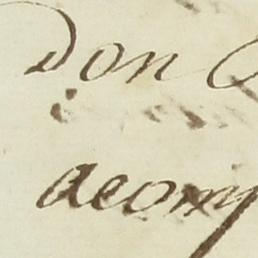 Don
acom